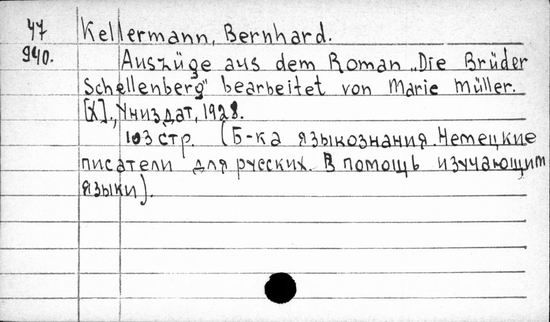 47 Kellermann, Bernhard.
940. Auszüge aus dem Roman „Die Brüder
Schellenberg" bearbeitet von Marie Müller.
[Х]., Униздат, 1928.
103 стр. (Б-ка языкознания. Немецкие
писатели для русских. В помощь изучающим
языки).